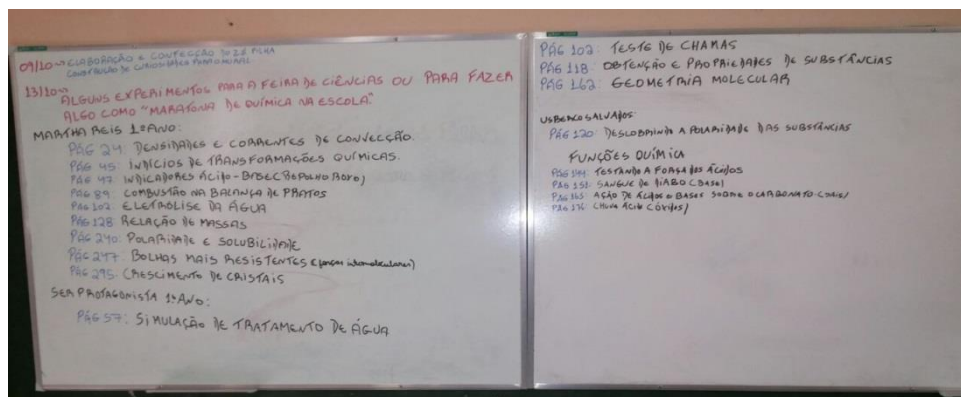 09/10 → ELABORAÇÃO E CONFECÇÃO DO 2ª FICHA
CONSTRUÇÃO DE CURIOSIDADES PARA O MURAL
13/10 → ALGUNS EXPERIMENTOS PARA A FEIRA DE CIÊNCIAS OU PARA FAZER
ALGO COMO "MARATONA DE QUÍMICA NA ESCOLA"
MARTHA REIS 1º ANO:
PÁG 24: DENSIDADES E CORRENTES DE CONVECÇÃO.
PÁG 45: INDÍCIOS DE TRANSFORMAÇÕES QUÍMICAS.
PÁG 47: INDICADORES ÁCIDO-BASE (REPOLHO ROXO)
PÁG 89: COMBUSTÃO NA BALANÇA DE PRATOS
PÁG 102: ELETRÓLISE DA ÁGUA
PÁG 128 RELAÇÃO DE MASSAS
PÁG 240: POLARIDADE E SOLUBILIDADE
PÁG 247: BOLHAS MAIS RESISTENTES (forças intermoleculares)
PÁG 295: CRESCIMENTO DE CRISTAIS
SER PROTAGONISTA 1º ANO:
PÁG 57: SIMULAÇÃO DE TRATAMENTO DE ÁGUA
PÁG 102: TESTE DE CHAMAS
PÁG 118: OBTENÇÃO E PROPRIEDADES DE SUBSTÂNCIAS
PÁG 162: GEOMETRIA MOLECULAR
USBERCO SALVADOR:
PÁG 120: DESCOBRINDO A POLARIDADE DAS SUBSTÂNCIAS
FUNÇÕES QUÍMICA
PÁG TESTANDO A FORÇA DOS ÁCIDOS
PÁG SANGUE DE DIABO (BASE)
PÁG AÇÃO DE ÁCIDOS E BASES SOBRE O CARBONATO
PÁG CHUVA ÁCIDA (ÓXIDOS)